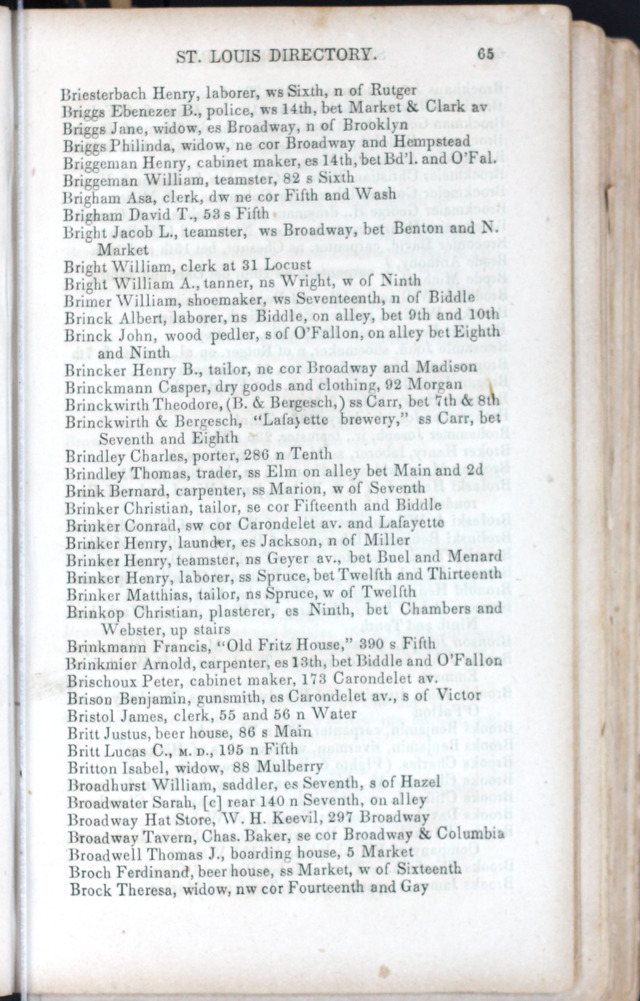 ST. LOUIS DIRECTORY. 65
Briesterbach Henry, laborer, ws Sixth, n of Rutger
Briggs Ebenezer B., police, ws 14th, bet Market & Clark av
Briggs Jane, widow, es Broadway, n of Brooklyn
Briggs Philinda, widow, ne cor Broadway and Hempstead
Briggeman Henry, cabinet maker, es 14th, bet Bd'l. and O'Fal.
Briggeman William, teamster, 82 s Sixth
Brigham Asa, clerk, dw ne cor Fifth and Wash
Brigham David T., 53 s Fifth
Bright Jacob L., teamster, ws Broadway, bet Benton and N.
Market
Bright William, clerk at 31 Locust
Bright William A., tanner, ns Wright, w of Ninth
Brimer William, shoemaker, ws Seventeenth, n of Biddle
Brinck Albert, laborer, ns Biddle, on alley, bet 9th and 10th
Brinck John, wood pedler, s of O'Fallon, on alley bet Eighth
and Ninth
Brincker Henry B., tailor, ne cor Broadway and Madison
Brinckmann Casper, dry goods and clothing, 92 Morgan
Brinckwirth Theodore, (B. & Bergesch,) ss Carr, bet 7th & 8th
Brinckwirth & Bergesch, "Lafayette brewery," ss Carr, bet
Seventh and Eighth
Brindley Charles, porter, 286 n Tenth
Brindley Thomas, trader, ss Elm on alley bet Main and 2d
Brink Bernard, carpenter, ss Marion, w of Seventh
Brinker Christian, tailor, se cor Fifteenth and Biddle
Brinker Conrad, sw cor Carondelet av. and Lafayette
Brinker Henry, launder, es Jackson, n of Miller
Brinker Henry, teamster, ns Geyer av., bet Buel and Menard
Brinker Henry, laborer, ss Spruce, bet Twelfth and Thirteenth
Brinker Matthias, tailor, ns Spruce, w of Twelfth
Brinkop Christian, plasterer, es Ninth, bet Chambers and
Webster, up stairs
Brinkmann Francis, "Old Fritz House," 390 s Fifth
Brinkmier Arnold, carpenter, es 13th, bet Biddle and O'Fallon
Brischoux Peter, cabinet maker, 173 Carondelet av.
Brison Benjamin, gunsmith, es Carondelet av., s of Victor
Bristol James, clerk, 55 and 56 n Water
Britt Justus, beer house, 86 s Main
Britt Lucas C., M. D., 195 n Fifth
Britton Isabel, widow, 88 Mulberry
Broadhurst William, saddler, es Seventh, s of Hazel
Broadwater Sarah, [c] rear 140 n Seventh, on alley
Broadway Hat Store, W. H. Keevil, 297 Broadway
Broadway Tavern, Chas. Baker, se cor Broadway & Columbia
Broadwell Thomas J., boarding house, 5 Market
Broch Ferdinand, beer house, ss Market, w of Sixteenth
Brock Theresa, widow, nw cor Fourteenth and Gay